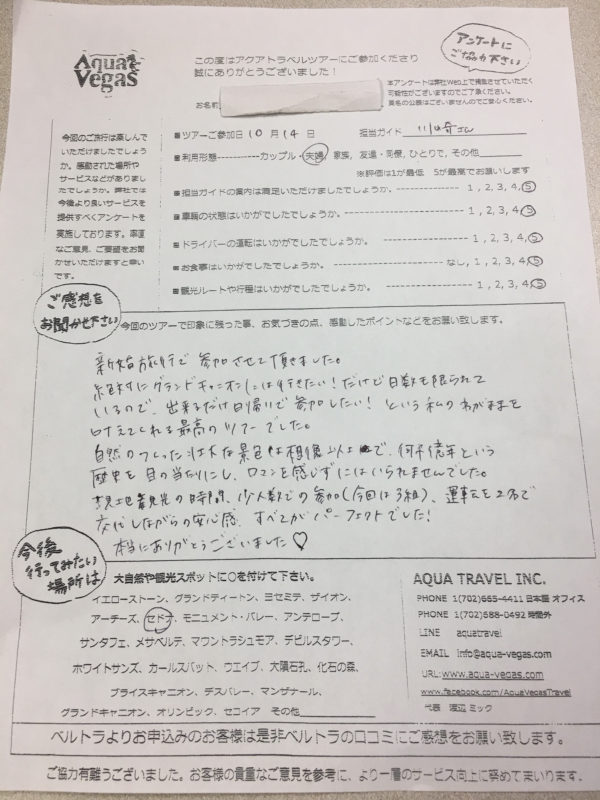 Aqua Vegas
この度はアクアトラベルツアーにご参加くださり
誠にありがとうございました！
アンケートに
ご協力下さい
本アンケートは弊社Web上で掲載させていただく
可能性がございますのでご了承ください。
実名の公表はございませんのでご安心ください。
お名前
今回のご旅行は楽しんで
いただけましたでしょう
か。感動された場所や
サービスなどがありまし
たでしょうか。弊社では
今後より良いサービスを
提供すべくアンケートを
実施しております。率直
なご意見、ご要望をお聞
かせいただけますと幸い
です。
■ツアーご参加日 10月 14日 担当ガイド 川崎さん
■利用形態-----------カップル・夫婦、家族、友達・同僚、ひとりで、その他
※評価は1が最低 5が最高でお願いします
■担当ガイドの案内は満足いただけましたでしょうか。------------ 1 , 2, 3, 4, 5
■車輌の状態はいかがでしたでしょうか。------------ 1 , 2, 3, 4, 5
■ドライバーの運転はいかがでしたでしょうか。------------ 1 , 2, 3, 4, 5
■お食事はいかがでしたでしょうか。------------ なし, 1, 2, 3, 4, 5
■観光ルートや行程はいかがでしたでしょうか。------------ 1, 2, 3, 4, 5
ご感想を
お聞かせ下さい
今回のツアーで印象に残った事、お気づきの点、感動したポイントなどをお願い致します。
新婚旅行で参加させて頂きました。
絶対にグランドキャニオンには行きたい！だけど日数も限られて
いるので、出来るだけ日帰りで参加したい！という私のわがままを
叶えてくれる最高のツアーでした。
自然のつくった壮大な景色は想像以上で、何千億年という
歴史を目の当たりにし、ロマンを感じずにはいられませんでした。
現地観光の時間、少人数での参加(今回は3組)、運転を2名で
交代しながらの安心感、すべてがパーフェクトでした！
本当にありがとうございました♡
今後
行ってみたい
場所は
大自然や観光スポットに○を付けて下さい。
イエローストーン、グランドティートン、ヨセミテ、ザイオン、
アーチーズ、セドナ、モニュメント・バレー、アンテロープ、
サンタフェ、メサベルデ、マウントラシュモア、デビルスタワー、
ホワイトサンズ、カールスバット、ウエイブ、大隕石孔、化石の森、
ブライスキャニオン、デスバレー、マンザナール、
グランドキャニオン、オリンピック、セコイア その他
AQUA TRAVEL INC.
PHONE 1(702)665-4411 日本語 オフィス
PHONE 1(702)688-0492 時間外
LINE aquatravel
EMAIL info@aqua-vegas.com
URL:www.aqua-vegas.com
www.facebook.com/AquaVegasTravel
代表 渡辺 ミック
ベルトラよりお申込みのお客様は是非ベルトラの口コミにご感想をお願い致します。
ご協力有難うございました。お客様の貴重なご意見を参考に、より一層のサービス向上に努めてまいります。